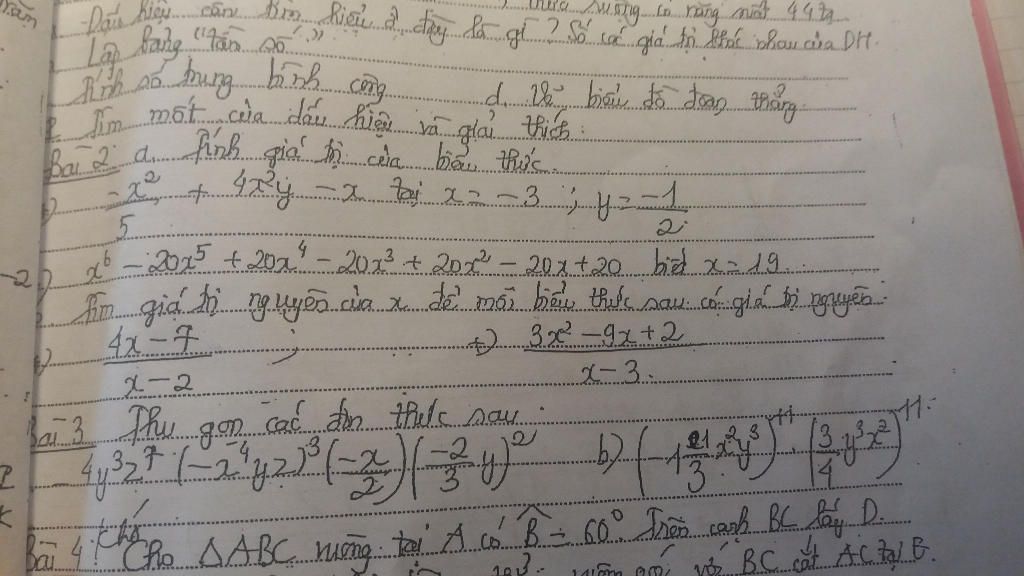 thửa ruộng có năng suất 44 tạ
Dấu hiệu cần tìm hiểu ở đây là gì? Số các giá trị khác nhau của DH.
Lập bảng "tần số"
Tính số trung bình cộng d. Vẽ biểu đồ đoạn thẳng.
Tìm mốt của dấu hiệu và giải thích.
Bài 2: a. Tính giá trị của biểu thức.
-x²/5 + 4x²y - x tại x = -3 ; y = -1/2
x⁶ - 20x⁵ + 20x⁴ - 20x³ + 20x² - 20x + 20 biết x = 19.
Tìm giá trị nguyên của x để mỗi biểu thức sau có giá trị nguyên.
(4x - 7)/(x - 2) ; +) (3x² - 9x + 2)/(x - 3).
Bài 3 Thu gọn các đơn thức sau.
4y³z⁷ (-x⁴yz)³ (-x/2) (-2/3 y)² b) (-1 1/3 x²y³)¹¹ . (3/4 y³x²)¹¹.
Bài 4: Cho ΔABC vuông tại A có B̂ = 60°. Trên cạnh BC lấy D.
với BC cắt AC tại E.